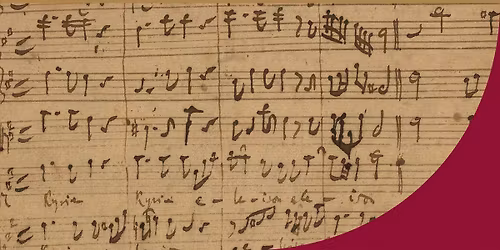 Kyrie Kyrie e - leison ele - ison